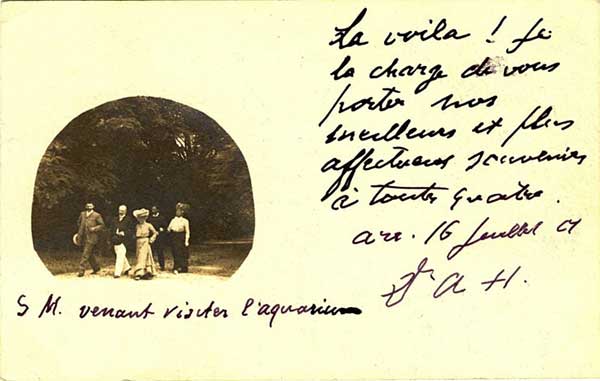 La voila ! Je
la charge de vous
porter nos
meilleurs et plus
affectueux souvenirs
à toutes quatre.
arc. 16 Juillet 07
Dr A H.
S M. venant visiter l'aquarium